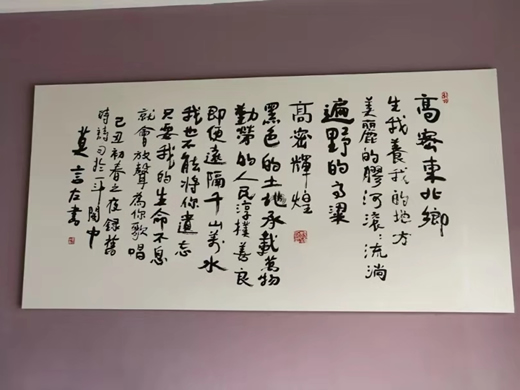 高密東北鄉
生我養我的地方
美麗的膠河滾〻流淌
遍野的高粱
高密輝煌
黑色的土地承載萬物
勤勞的人民淳樸善良
即便遠隔千山萬水
我也不能將你遺忘
只要我的生命不息
就會放聲為你歌唱
己丑初春之夜錄舊
時詩句於一斗閣中
莫言左書